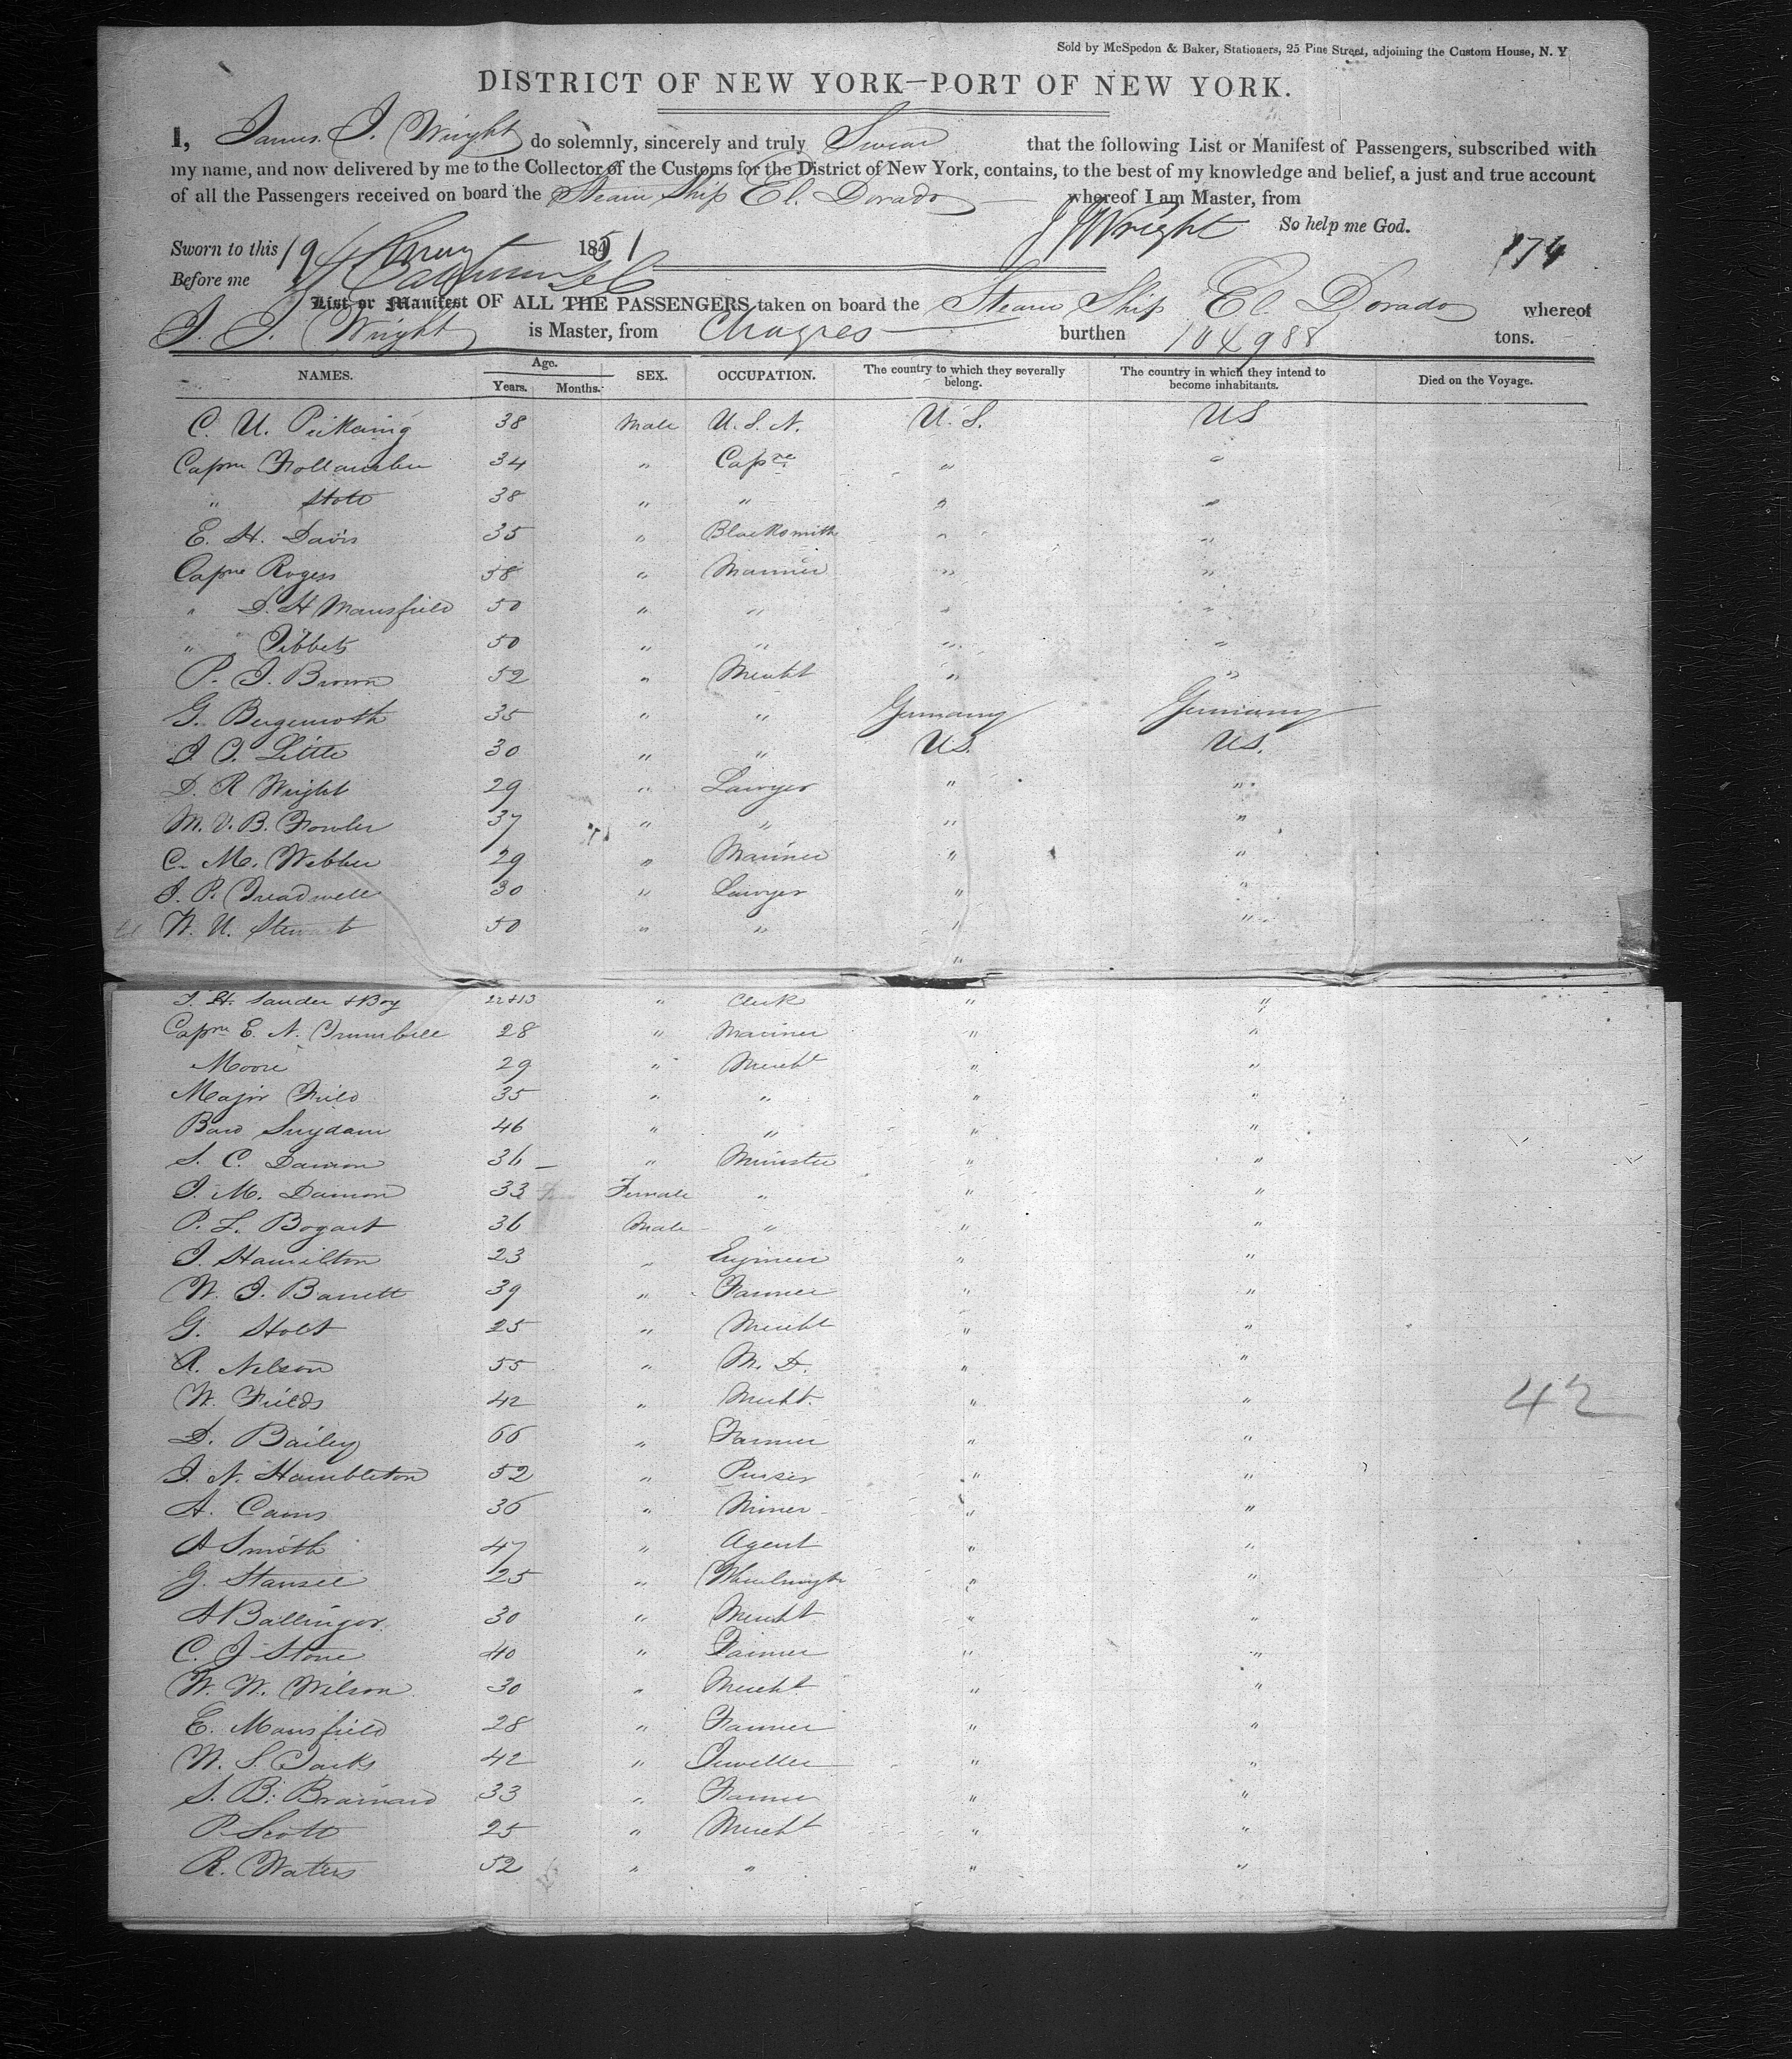 Sold by McSpedon & Baker, Stationers, 25 Pine Street, adjoining the Custom House, N. Y
DISTRICT OF NEW YORK—PORT OF NEW YORK.
I, James J. Wright do solemnly, sincerely and truly Swear that the following List or Manifest of Passengers, subscribed with
my name, and now delivered by me to the Collector of the Customs for the District of New York, contains, to the best of my knowledge and belief, a just and true account
of all the Passengers received on board the Steam Ship El. Dorado whereof I am Master, from
J J Wright So help me God.
Sworn to this 19 1851 174
Before me
List or Manifest OF ALL THE PASSENGERS taken on board the Steam Ship El. Dorado whereof
J. J. Wright is Master, from Chagres burthen 104988 tons.
NAMES. Age. Years. Months. SEX. OCCUPATION. The country to which they severally belong. The country in which they intend to become inhabitants. Died on the Voyage.
C. U. Pickering 38 Male U. S. N. U. S. US
Capn Follansbee 34 " Capn " "
" Stott 38 " " " "
E. H. Davis 35 " Blacksmith " "
Capn Rogers 58 " Mariner " "
" D. H Mansfield 50 " " " "
" Tibbets 50 " " " "
P. J. Brown 52 " Mercht " "
G. Bergenroth 35 " " Germany Germany
J. J. Little 30 " " US. US.
D. R Wright 29 " Lawyer " "
M. V. B. Fowler 37 " " " "
C. M. Webber 29 " Mariner " "
J. P. Treadwell 30 " Lawyer " "
W. U. Stewart 50 " " " "
"
J. H. Sander & Boy 22 & 13 " Clerk " "
Capn E. N. Trumbull 28 " Mariner " "
Moore 29 " Mercht " "
Major Field 35 " " " "
Bard Suydam 46 " " " "
S. C. Damon 36 " Minister " "
J. M. Damon 33 Female " " "
P. L. Bogart 36 Male " " "
J. Hamilton 23 " Engineer " "
W. J. Barrett 39 " Farmer " "
G. Holt 25 " Mercht " "
R. Nelson 55 " M. D. " "
W. Fields 42 " Mercht. " " 42
D. Bailey 66 " Farmer " "
J. N. Hambleton 52 " Purser " "
A. Cains 36 " Miner " "
A Smith 47 " Agent " "
G. Stansel 25 " Wheelwright " "
A Ballinger 30 " Mercht " "
C. J Stone 40 " Farmer " "
W. W. Wilson 30 " Mercht. " "
E. Mansfield 28 " Farmer " "
W. S. Jacks 42 " Jeweller " "
S. B. Brainard 33 " Farmer " "
P. Scott 25 " Mercht " "
R. Waters 52 " " " "